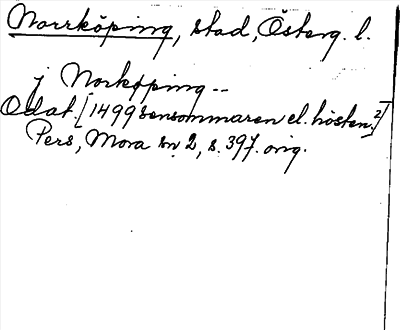 Norrköping, stad, Österg. l.
j Norköping --
Odat. [1499 sensommaren el. hösten.²]
Pers, Mora sn 2, s. 397. orig.